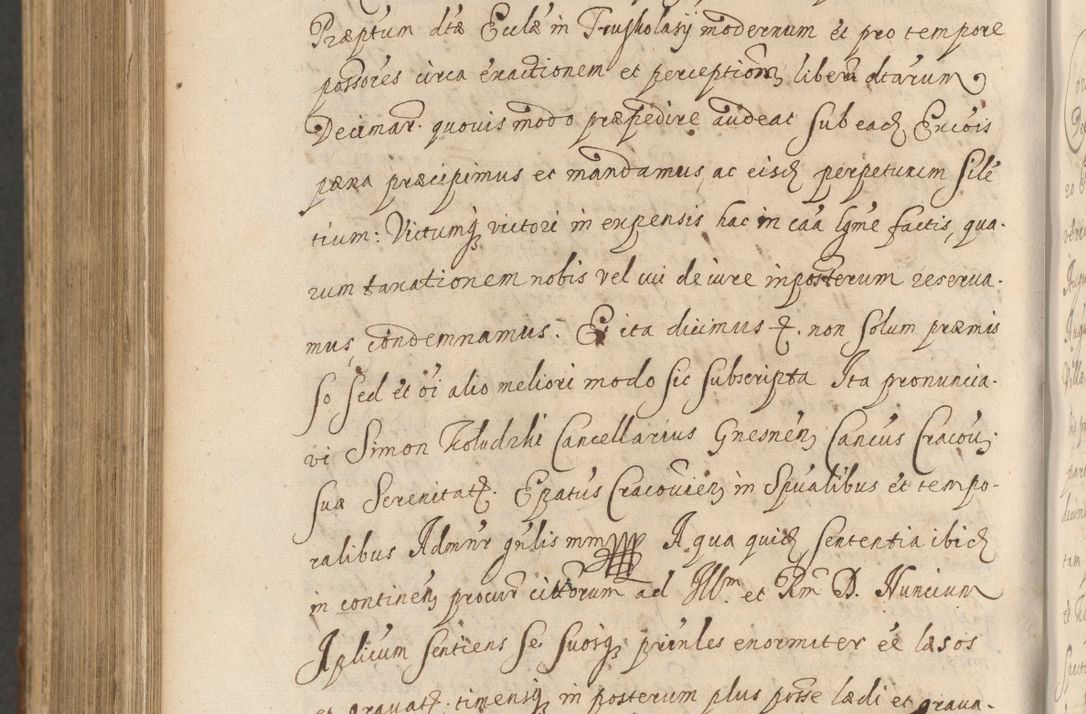 Præptum dtæ Eccłæ in Truskolasÿ modernum et pro tempore
possores circa exactionem et perceptionē liberā dtarum
Decimar. quovis modo præpedire audeat sub eadē Excōis
pæna præcipimus et mandamus, ac eisdē perpetuum Silē
tium: Victumq victori in expensis hac in caā lgme factis, qua-
rum taxationem nobis vel cui de iure inposterum reserva-
mus, condemnamus. Et ita dicimus &. non Solum præmis
so sed et oī alio meliori modo sic subscripta Ita pronuncia-
vi Simon Koludzki Cancellarius Gnesnēn Cancus Cracou;
suæ Serenitatꝭ. Epatus Cracoviēn in Spualibus et tempo-
ralibus Admnr gnlis mm A qua quidē sententia ibidē
in continēn procur cittorum ad Illm. et Rm D. Nuncium
Aplicum sentiens se suosq prinles enormiter eē læsos
et gravatꝭ. timensq in posterum plus posse lædi et grava-